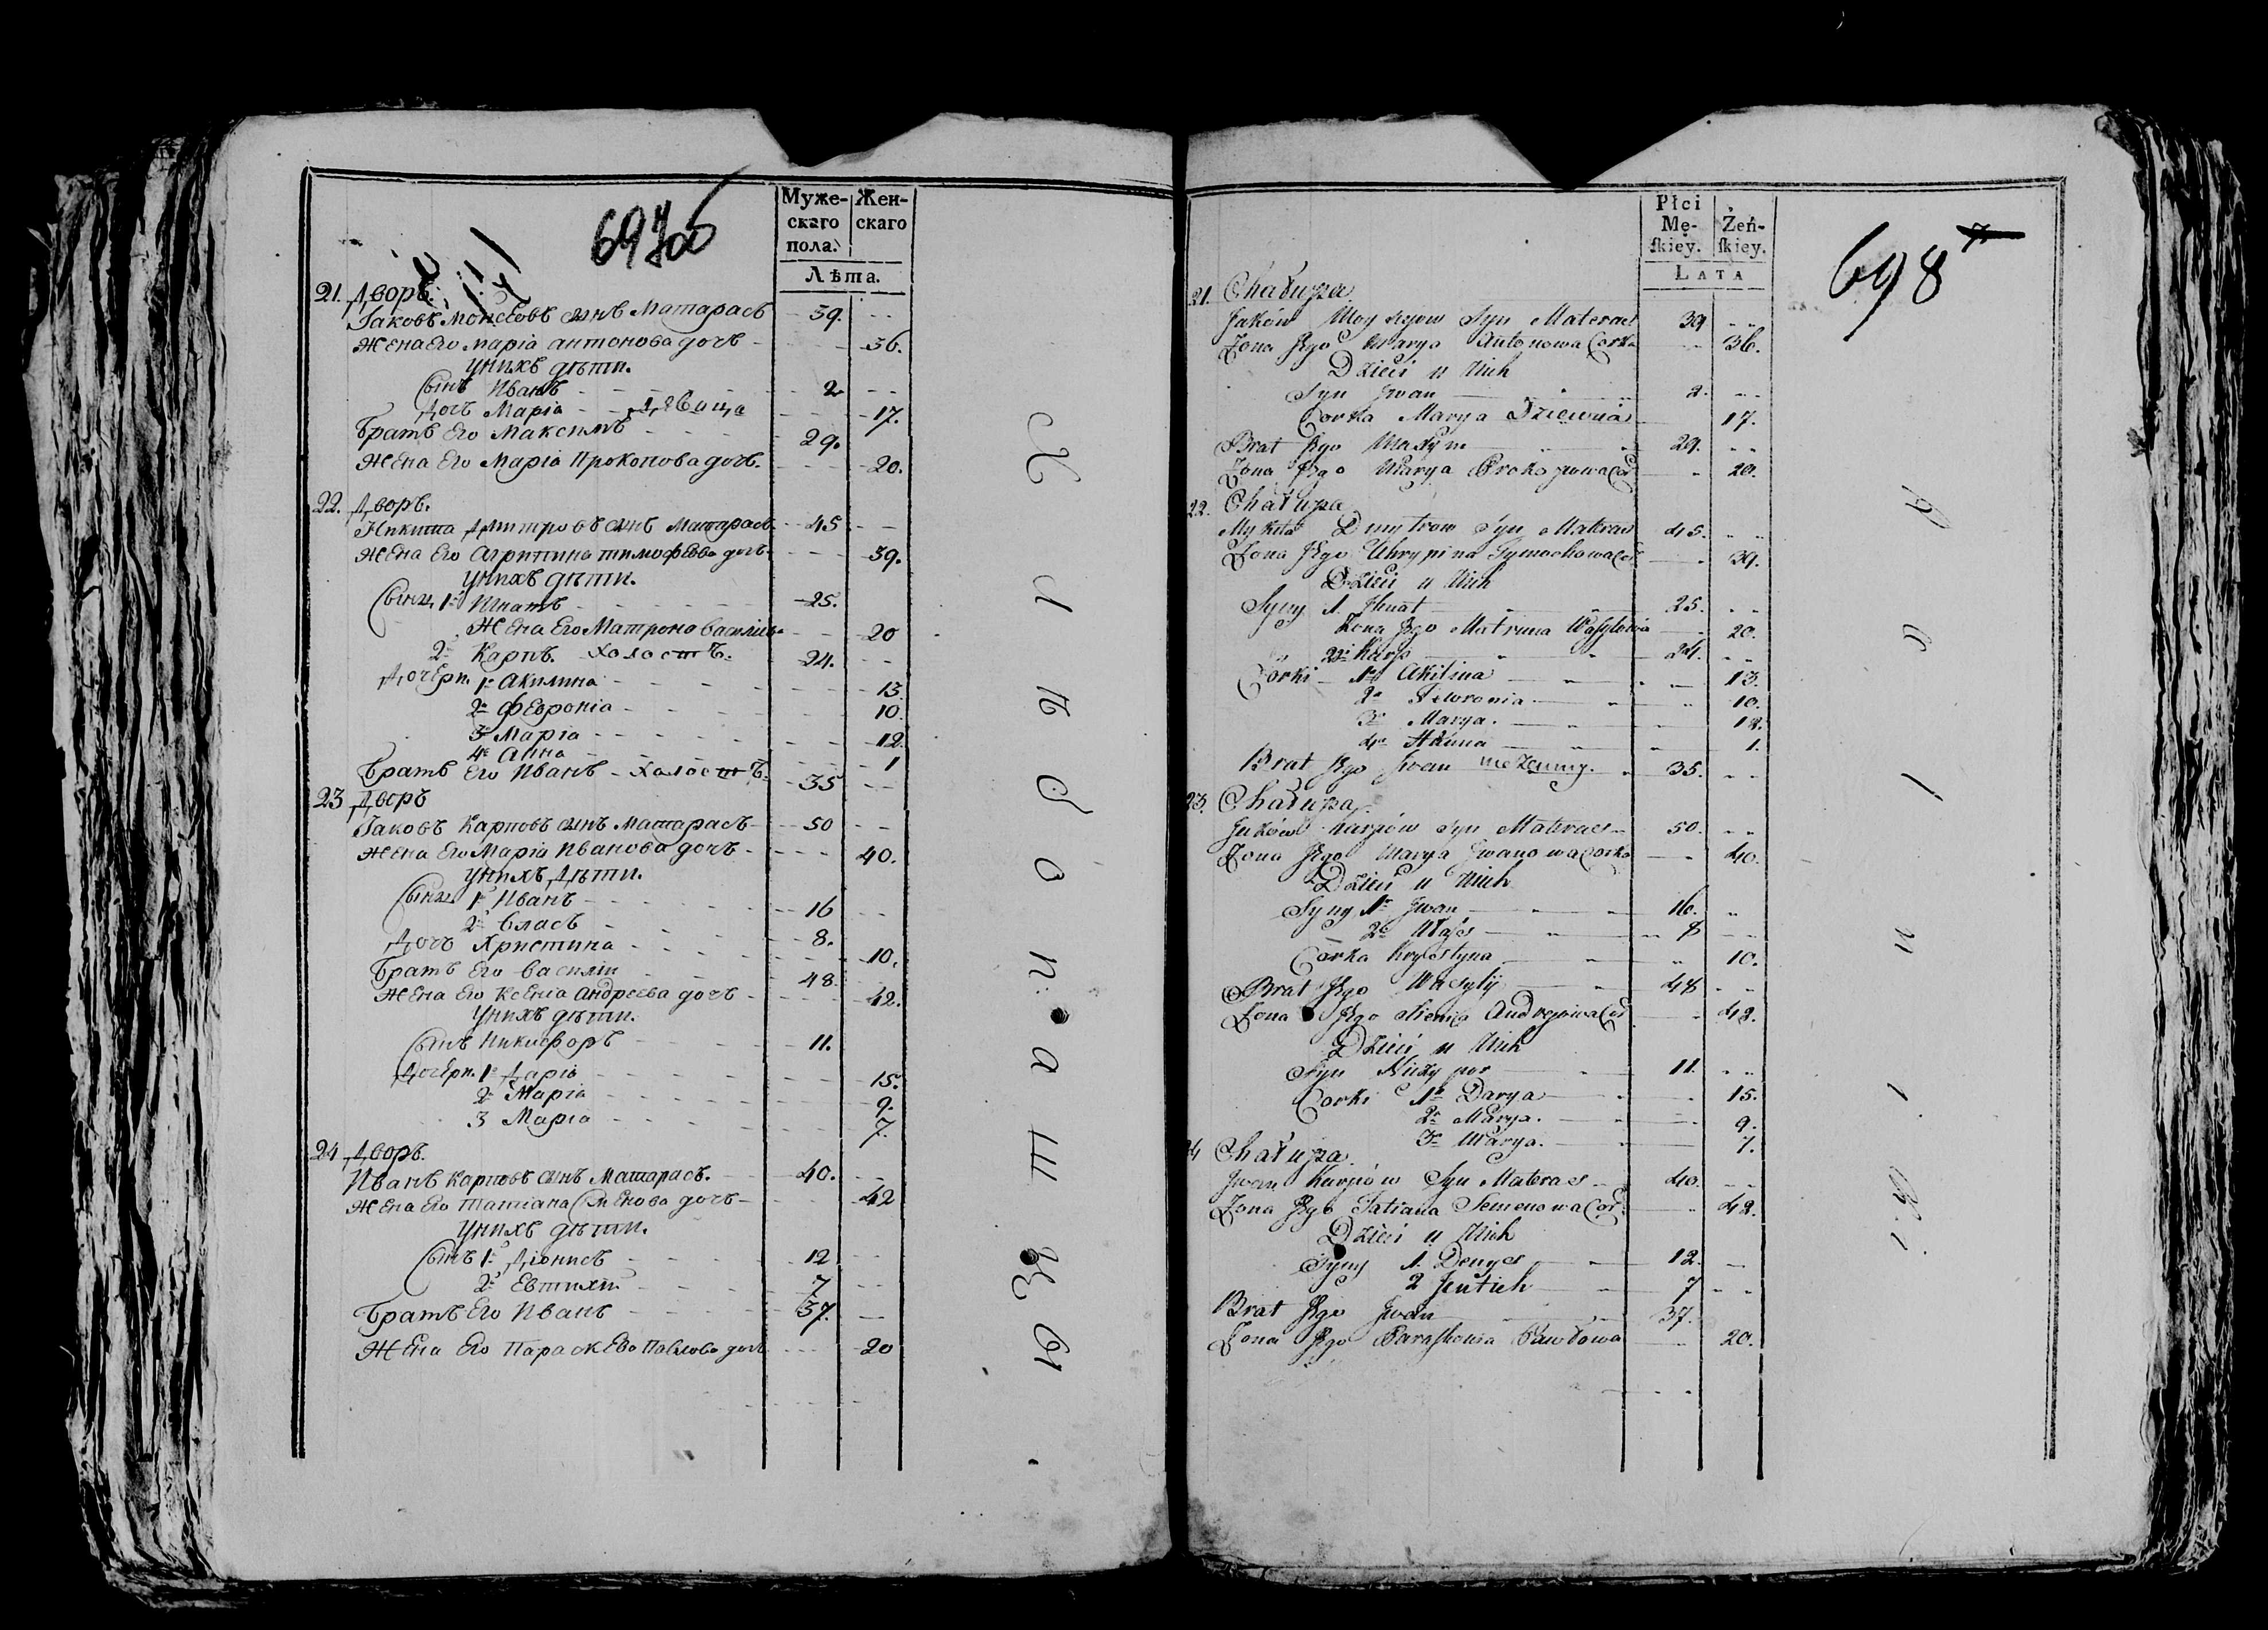 697об
Муже-
скаго
пола.
Жен-
скаго
Лѣта.
21. Дворъ.
Іаковъ Моисеовъ сынъ Матарасъ 39.
Жена Его Маріа Антонова дочь 36.
Унихъ дѣти.
Сынъ Иванъ 2
Дочь Маріа Дѣвица 17.
Братъ Его Максимъ 29.
Жена Его Маріа Прокопова дочь. 20.
22. Дворъ.
Никита Дмитровъ сынъ Матарасъ 45
Жена Его Агрипина Тимофѣева дочь 39.
Унихъ дѣти.
Сыны 1й Игнатъ 25.
Жена Его Матрона Василіева 20
2й Карпъ. Холостъ. 24.
Дочери. 1я Акилина 13
2я Февронiа 10.
3 Маріа 12
4я Анна 1
Братъ Его Иванъ - Холостъ. 35
23 Дворъ
Іаковъ Карповъ сынъ Матарасъ 50
Жена Его Маріа Иванова дочь 40.
Унихъ Дѣти.
Сыны 1й Иванъ 16
2й Власъ 8.
Дочь Христина 10.
Братъ Его Василій 48
Жена Его Ксеніа Андреева дочь 42.
Унихъ дѣти.
Сынъ Никифоръ 11.
Дочери. 1я Даріа 15.
2я Маріа 9.
3 Маріа 7.
24 Дворъ.
Иванъ Карповъ сынъ Матарасъ. 40.
Жена Его Татіана Семенова дочь 42
Унихъ дѣти.
Сынъ 1й Діонисъ 12
2й Евтихій 7
Братъ Его Иванъ 37.
Жена Его Параскева Павлова дочь 20
Х л ѣ б о п а ш ц ы
698
Płci
Mę-
skiey.
Żeń-
skiey.
LATA
21. Chałupa
Jaków Moyseyow Syn Materacs 39
Żona Jego Marya Antonowa Corka 36.
Dzieci u Nich
Syn Jwan 2.
Corka Marya Dziewna 17.
Brat Jego Maxym 29.
Żona Jego Marya Prokopowa Cor 20.
22. Chałupa
Mykita Dmytrow Syn Materacs 45.
Żona Jego Uhrypina Tymochowa Cor 39.
Dzieci u Nich
Syny 1. Hnat 25.
Żona Jego Matruna Wasylowa 20.
2i Karp 24.
Corki 1a Akilina 13.
2a Fewronia 10.
3a Marya. 12.
4a Hanna 1.
Brat Jego Jwan nieżenny. 35.
23. Chałupa
Jaków Karpów Syn Materacs 50.
Żona Jego Marya Jwanowa Corka 40.
Dzieci u Nich
Syny 1. Jwan 16.
2i Włas 8
Corka Krystyna 10.
Brat Jego Wasylÿ 48
Żona Jego Xienia Andrejowa Cor 42.
Dzieci u Nich
Syn Niczypor 11.
Corki 1a Darya 15.
2a Marya. 9.
3a Marya. 7.
24 Chałupa.
Jwan Karpów Syn Materacs 40.
Żona Jego Tatiana Semenowa Cor 42.
Dzieci u Nich
Syny 1. Denyes 12.
2 Jewtich 7
Brat Jego Jwan 37.
Żona Jego Paraskowia Pawłowa 20.
R o l n i c y